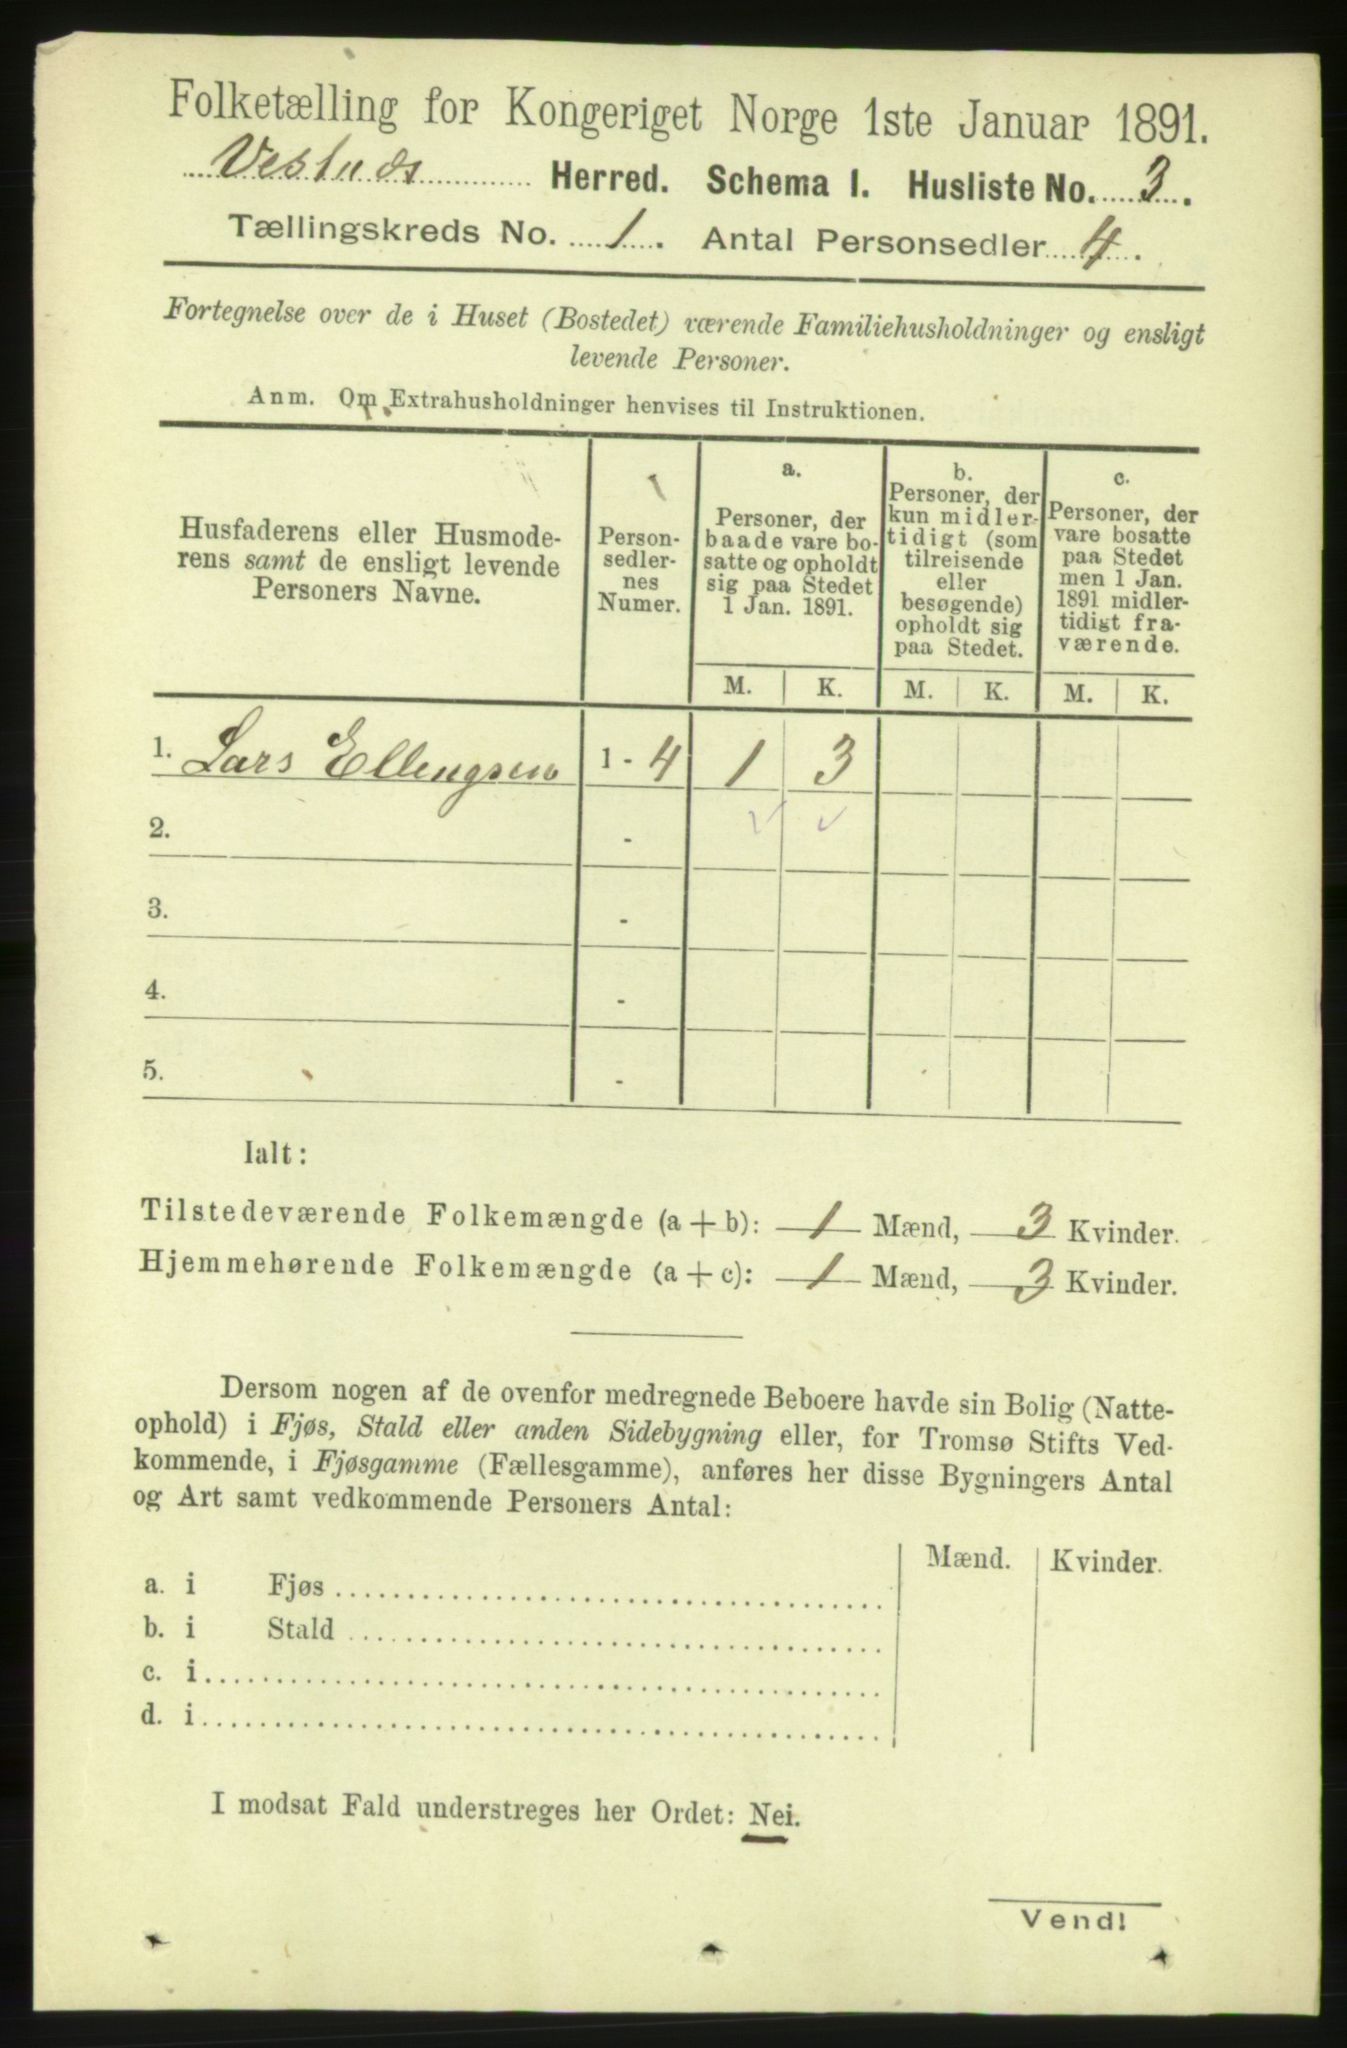 Folketælling for Kongeriget Norge 1ste Januar 1891.
Vestnæs Herred. Schema I. Husliste No. 3.
Tællingskreds No. 1. Antal Personsedler 4.
Fortegnelse over de i Huset (Bostedet) værende Familiehusholdninger og ensligt
levende Personer.
Anm. Om Extrahusholdninger henvises til Instruktionen.
Husfaderens eller Husmode-
rens samt de ensligt levende
Personers Navne.
Person-
sedler-
nes
Numer.
a.
Personer, der
baade vare bo-
satte og opholdt
sig paa Stedet
1 Jan. 1891.
b.
Personer, der
kun midler-
tidigt (som
tilreisende
eller
besøgende)
opholdt sig
paa Stedet.
c.
Personer, der
vare bosatte
paa Stedet
men 1 Jan.
1891 midler-
tidigt fra-
værende.
M. K. M. K. M. K.
1. Lars Ellengsen 1 - 4 1 3
2. -
3. -
4. -
5. -
Ialt:
Tilstedeværende Folkemængde (a + b): 1 Mænd, 3 Kvinder.
Hjemmehørende Folkemængde (a + c): 1 Mænd, 3 Kvinder.
Dersom nogen af de ovenfor medregnede Beboere havde sin Bolig (Natte-
ophold) i Fjøs, Stald eller anden Sidebygning eller, for Tromsø Stifts Ved-
kommende, i Fjøsgamme (Fællesgamme), anføres her disse Bygningers Antal
og Art samt vedkommende Personers Antal:
Mænd. Kvinder.
a. i Fjøs
b. i Stald
c. i
d. i
I modsat Fald understreges her Ordet: Nei.
Vend!